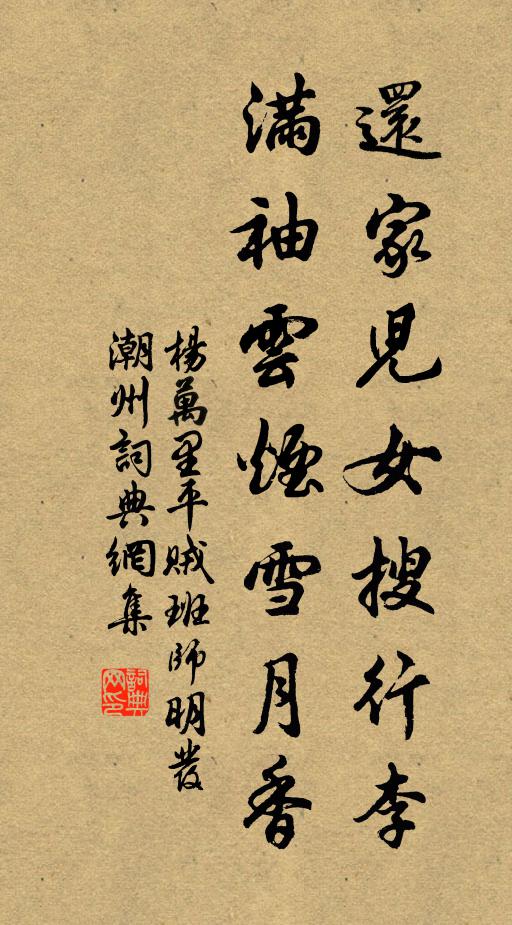 還家兒女搜行李
滿袖雲煙雪月香
楊萬里平賊班師明發
潮州詞典網集
詞典网印